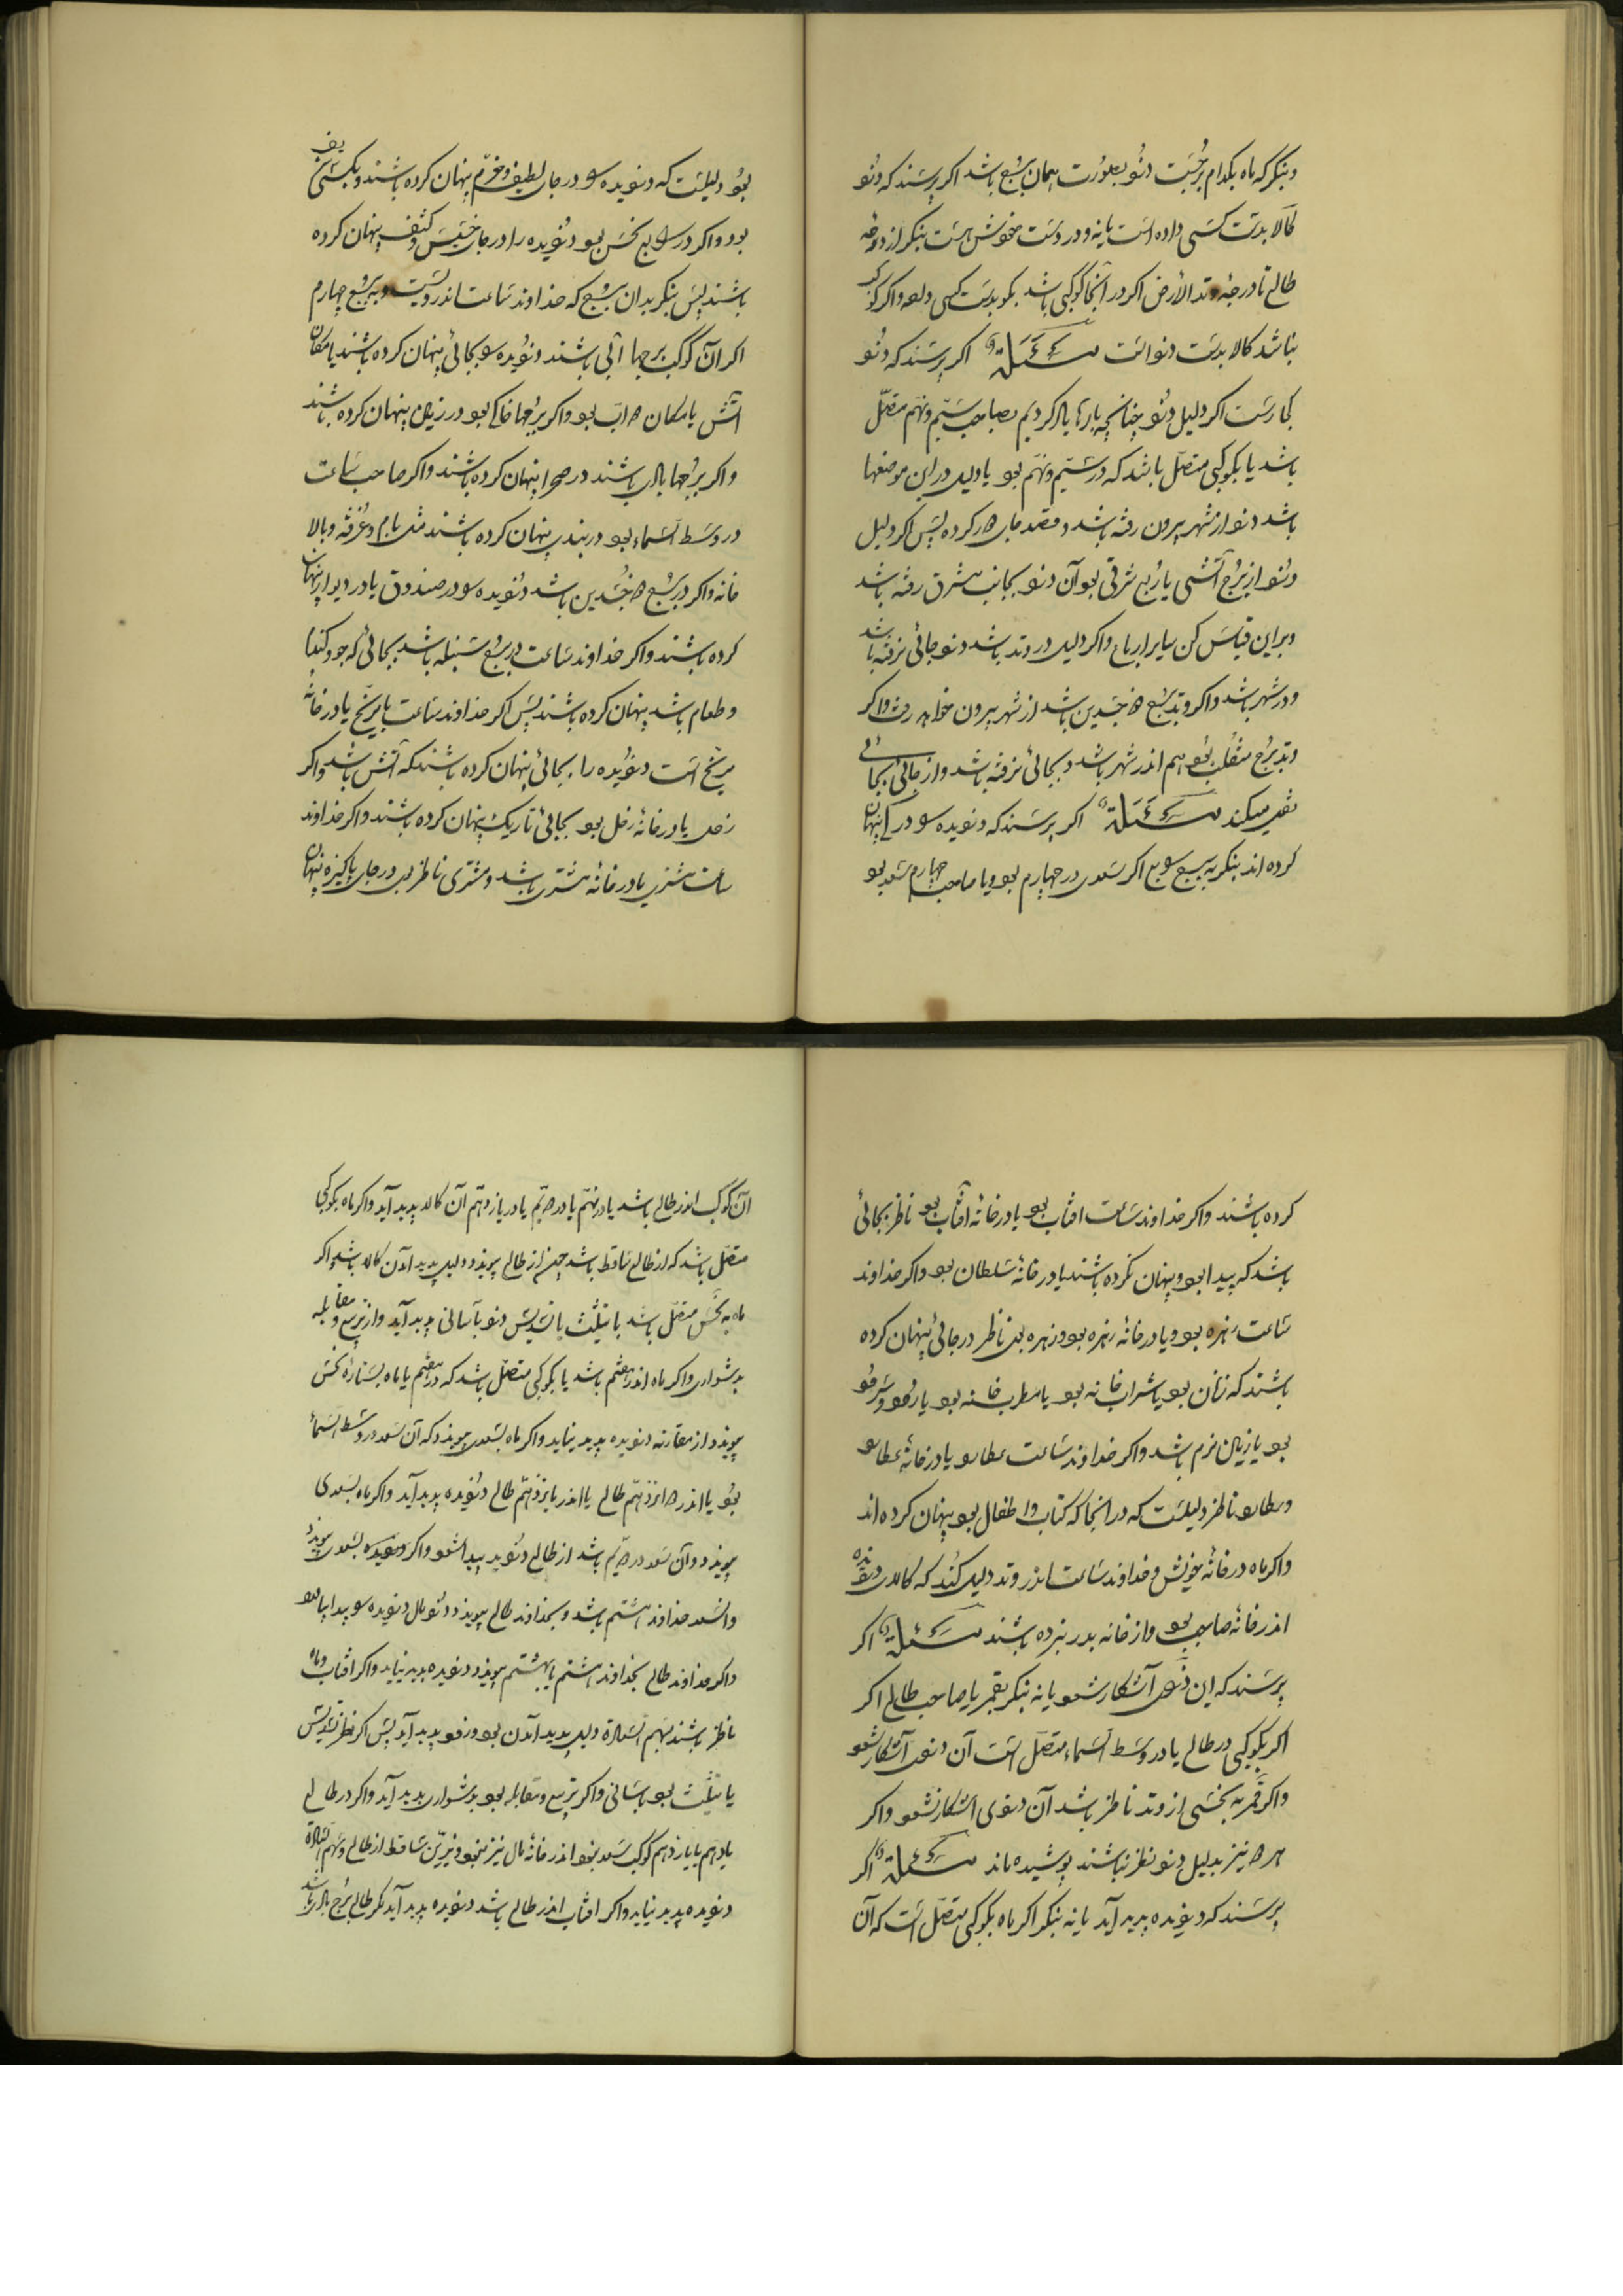 وبنگر که ماه بکدام برجست دزد بصورت همان برج باشد اکر پرسند که دزد
کالا بدست کسی داده است یا نه و در دست خوش هست بنکر از درجه
طالع تا درجهٔ وتد الأرض اکر در آنجا کوکبی باشد بکو بدست کسی داده و اکر کوکب
نباشد کالا بدست دزد است مسئلة اکر پرسند که دزد
کجا رست اکر دلیل دزد چنانچه بارها یاد کردیم بصاحب سیم و نهم متصل
باشد یا بکوکبی متصل باشد که در سیم و نهم بود یا دلیل در این موضعها
باشد دزد از شهر بیرون رفته باشد و قصد جای دیگر کرده پس اکر دلیل
دزد از برج آتشی یا ربع شرقی بود آن دزد بجانب مشرق رفته باشد
وبر این قیاس کن سایر ارباع واکر دلیل در وتد باشد دزد جائی نرفته باشد
ودر شهر باشد واکر وتد برج ذو جسدین باشد از شهر بیرون خواهد رفت واکر
وتد برج منقلب بود هم اندر شهر باشد و بجائی نرفته باشد و از جائی بجائی
نقل میکند مسئلة اکر پرسند که دزدیده را در کجا پنهان
کرده اند بنکر به برج رابع اکر سعدی در چهارم بود ویا صاحب چهارم سعد بود
بود دلیلست که دزدیده را در جای لطیف وخرم پنهان کرده باشند وبکسی شریف
بود واکر در رابع نحس بود دزدیده را در جای خسیس وکثیف پنهان کرده
باشند پس بنکر بدان برج که خداوند ساعت اندرویست وبه برج چهارم
اکر آن کوکب برجها آبی باشند دزدیده را بجائی پنهان کرده باشند یا مکان
آتش یا مکان دواب بود واکر برجها خاکی بود در زمین پنهان کرده باشند
واکر برجها بادی باشند در صحرا پنهان کرده باشند واکر صاحب ساعت
در وسط السماء بود در بلندی پنهان کرده باشند مثل بام و غرفه و بالا
خانه واکر در برج ذو جسدین باشد دزدیده را در صندوق یا در دیوار پنهان
کرده باشند واکر خداوند ساعت در برج سنبله باشد بجائی که جو و کندم
وطعام باشد پنهان کرده باشند پس اکر خداوند ساعت یا مریخ یا در خانه
مریخ است دزدیده را بجائی پنهان کرده باشند که آتش باشد واکر
زحل یا در خانهٔ زحل بود بجائی تاریک پنهان کرده باشند واکر خداوند
ساعت مشتری یا در خانهٔ مشتری باشد ومشتری ناظر بوی در جای پاکیزه پنهان
کرده باشند واکر خداوند ساعت افتاب بود یا در خانهٔ آفتاب بود ناظر بجائی
باشد که پیدا بود وپنهان نکرده باشند یا در خانهٔ سلطان بود واکر خداوند
ساعت زهره بود ویا در خانهٔ زهره بود وزهره بوی ناظر در جائی پنهان کرده
باشند که زنان بود یا شراب خانه بود یا مطرب خانه بود یا
بود یا زمین نرم باشد واکر خداوند ساعت عطارد یا در خانهٔ عطارد
وعطارد ناظر دلیلست که در آنجا که کتاب و اطفال بود پنهان کرده اند
واکر ماه در خانهٔ خویش وخداوند ساعت اندر وتد دلیل کند که کالای دزدیده
اندر خانهٔ صاحب بود واز خانه بدر نبرده باشند مسئلة اکر
پرسند که این دزدی آشکار شود یا نه بنکر بقمر یا صاحب طالع اکر
اکر بکوکبی در طالع یا در وسط السماء متصل است آن دزدی آشکار شود
واکر قمر به نحسی از وتد ناظر باشد آن دزدی آشکار نشود واکر
هر دو نیز بدلیل دزد نظر نباشند پوشیده ماند مسئلة اکر
پرسند که دزدیده پدید آید یا نه بنکر اکر ماه بکوکبی متصل است که آن
آن کوکب اندر طالع باشد یا در نهم یا در دهم یا در یازدهم آن کالا پدید آید واکر ماه بکوکبی
متصل باشد که از طالع ساقط باشد چون از طالع پیوندد دلیل پدید آمدن کالا باشد واکر
ماه به نحس متصل باشد با تثلیث یا تسدیس دزد بآسانی پدید آید واز تربیع و مقابله
بدشواری واکر ماه اندر هفتم باشد یا بکوکبی متصل باشد که در هفتم یا ماه بستارهٔ نحس
پیوندد از مقارنه دزدیده پدید نیاید واکر ماه بسعدی پیوندد که آن سعد در وسط السماء
بود یا اندر دوازدهم طالع یا اندر یازدهم طالع دزدیده پدید آید واکر ماه بسعدی
پیوندد وآن سعد در دهم باشد از طالع دزدیده پیدا شود واکر دزدیده بسعدی پیوندد
وآن سعد خداوند هشتم باشد وبخداوند طالع پیوندد دزد مال دزدیده را پیدا باشد
واکر خداوند طالع بخداوند هشتم یا بهشتم پیوندد دزدیده پدید نیاید واکر افتاب وماه
ناظر باشند بسهم السعادة دلیل پدید آمدن بود وزود پدید آید پس اکر نظر تسدیس
یا تثلیث بود بآسانی واکر تربیع ومقابله بود بدشواری پدید آید واکر در طالع
یا دهم یا یازدهم کوکب سعد نبود اندر خانهٔ مال نیز نبود ونیرین ساقط از طالع وسهم السعادة
دزدیده پدید نیاید واکر افتاب اندر طالع باشد دزدیده پدید آید مکر طالع برج بادی باشد